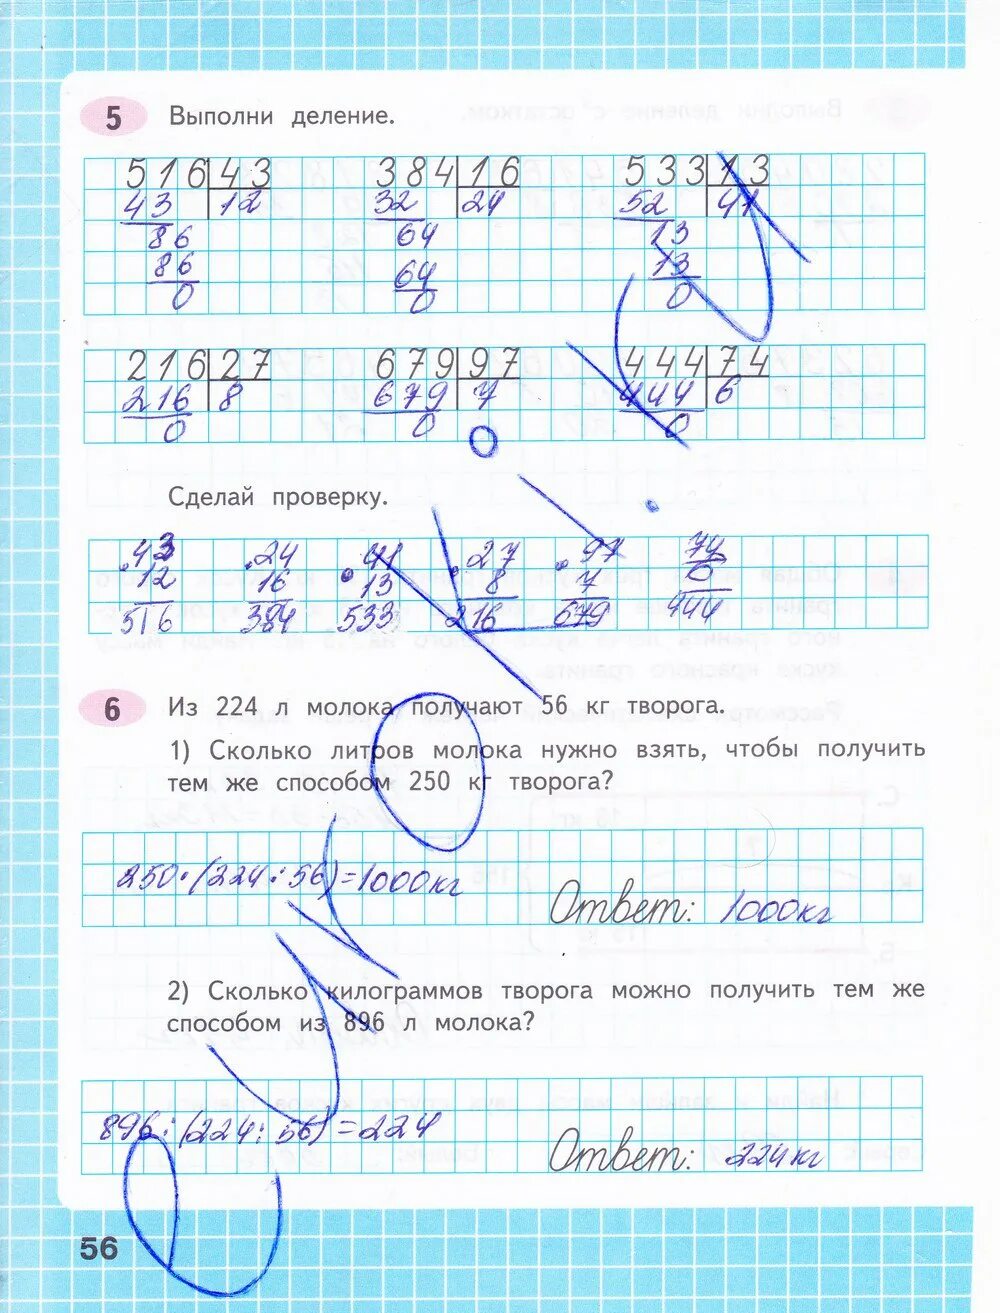 5 Выполни деление.
516 43 384 16 533 13
43 12 32 24 52 41
86 64 13
86 64 13
0 0 0
216 27 679 97 444 74
216 8 679 7 444 6
0 0 0
Сделай проверку.
43 24 41 27 97 74
12 16 13 8 7 6
516 384 533 216 679 444
6 Из 224 л молока получают 56 кг творога.
1) Сколько литров молока нужно взять, чтобы получить
тем же способом 250 кг творога?
250·(224:56)=1000кг
Ответ: 1000кг
2) Сколько килограммов творога можно получить тем же
способом из 896 л молока?
896:(224:56)=224
Ответ: 224кг
56